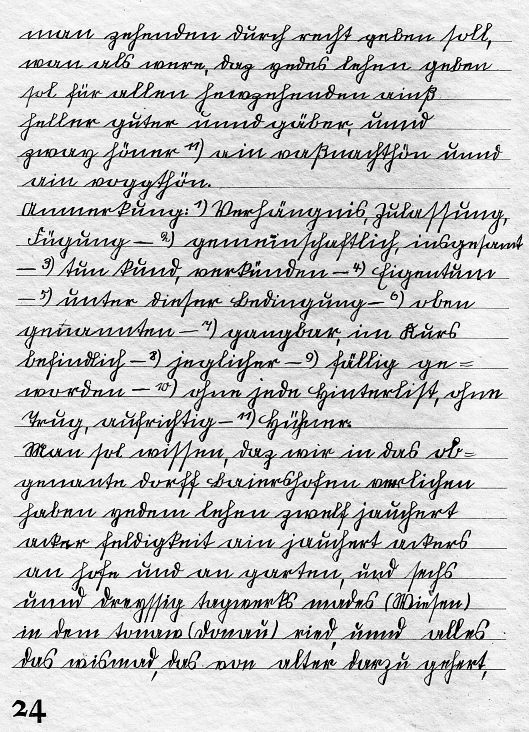 man zehenden durch recht geben soll,
wan als were, daz yedes lehen geben
sol für allen hewzehenden ainß
heller guter unnd gäber, unnd
zway höner 11) ain vaßnachthön unnd
ain voggthön.
Anmerkung: 1) Verhängnis, Zulassung,
Fügung – 2) gemeinschaftlich, insgesamt
– 3) tun kund, verkünden – 4) Eigentum
– 5) unter dieser Bedingung – 6) oben
genannten – 7) gangbar, im Kurs
befindlich – 8) jeglicher – 9) fällig ge=
worden – 10) ohne jede Hinterlist, ohne
Trug, aufrichtig – 11) Hühner.
Man sol wissen, daz wir in das ob=
genante dorff Baiershofen verlichen
haben yedem lehen zwelf jauchert
acker feldigkeit ain jauchert ackers
an hofe und an garten, und sechs
unnd dreyssig tagwerks mades (Wiesen)
in dem tonaw (Donau) ried, unnd alles
das wismad, das von alter darzu gehert,
24